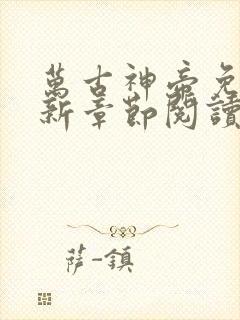 萬古神帝免
新章節閱讀
薩-鎮